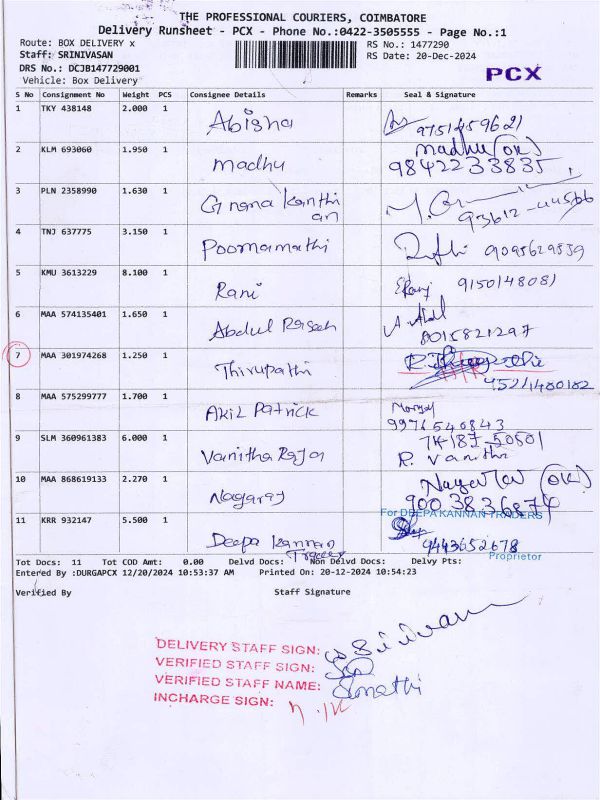 THE PROFESSIONAL COURIERS, COIMBATORE
Delivery Runsheet - PCX - Phone No.:0422-3505555 - Page No.:1
Route: BOX DELIVERY x
RS No.: 1477290
Staff: SRINIVASAN
RS Date: 20-Dec-2024
DRS No.: DCJB147729001
PCX
Vehicle: Box Delivery
S No Consignment No Weight PCS Consignee Details Remarks Seal & Signature
1 TKY 438148 2.000 1 Abisha 9751459621
2 KLM 693060 1.950 1 madhu madhu (OK)
9842233835
3 PLN 2358990 1.630 1 Gnana kanthi
an
4 TNJ 637775 3.150 1 Poornamathi 9095629839
5 KMU 3613229 8.100 1 Rani Rani 9150148081
6 MAA 574135401 1.650 1 Abdul Raseeh
8015821297
7 MAA 301974268 1.250 1 Thirupathi
8 MAA 575299777 1.700 1 AKIL PATRICK
9976540843
9 SLM 360961383 6.000 1 Vanitha Raja R. Vanithi
10 MAA 868619133 2.270 1 Nagaraj (OK)
9003836874
11 KRR 932147 5.500 1 Deepa kannan
For DEEPA KANNAN TRADERS
9443652678
Proprietor
Tot Docs: 11 Tot COD Amt: 0.00 Delvd Docs: Non Delvd Docs: Delvy Pts:
Entered By :DURGAPCX 12/20/2024 10:53:37 AM Printed On: 20-12-2024 10:54:23
Verified By Staff Signature
DELIVERY STAFF SIGN: Srinivasan
VERIFIED STAFF SIGN:
VERIFIED STAFF NAME:
INCHARGE SIGN: